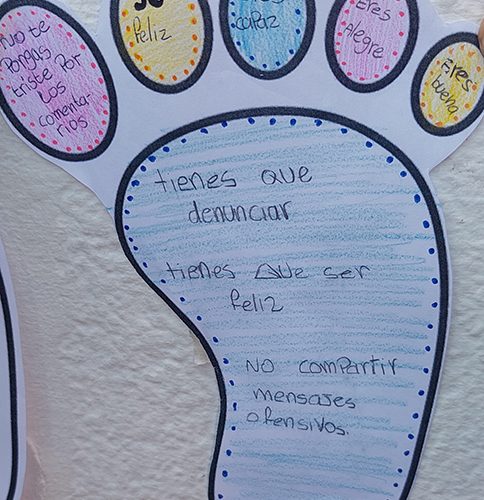 No te
Pongas
triste Por
los
comenta-
rios
feliz
capaz
Eres
Alegre
Eres
buena
tienes que
denunciar
tienes que ser
feliz
No compartir
mensajes
ofensivos.